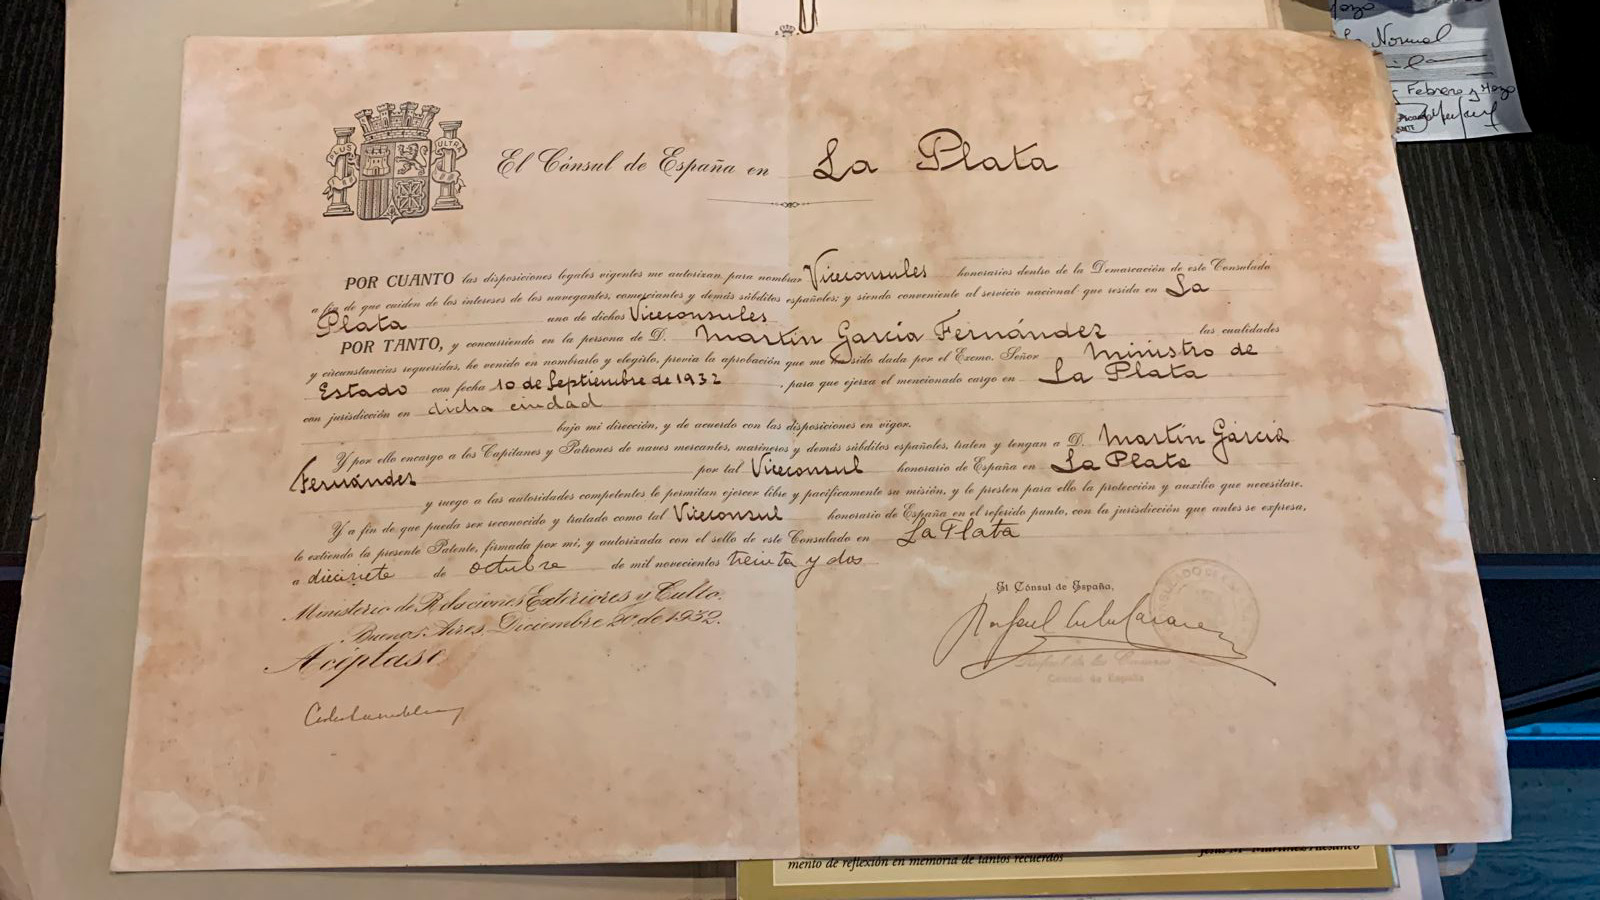 PLUS
ULTRA
El Cónsul de España en La Plata
POR CUANTO las disposiciones legales vigentes me autorizan para nombrar Viceconsules honorarios dentro de la Demarcación de este Consulado
a fin de que cuiden de los intereses de los navegantes, comerciantes y demás súbditos españoles; y siendo conveniente al servicio nacional que resida en La
Plata uno de dichos Viceconsules
POR TANTO, y concurriendo en la persona de D. Martín García Fernández las cualidades
y circunstancias requeridas, he venido en nombrarlo y elegirlo, previa la aprobación que me ha sido dada por el Excmo. Señor Ministro de
Estado con fecha 10 de Septiembre de 1932, para que ejerza el mencionado cargo en La Plata
con jurisdicción en dicha ciudad
bajo mi dirección, y de acuerdo con las disposiciones en vigor.
Y por ello encargo a los Capitanes y Patrones de naves mercantes, marineros y demás súbditos españoles, traten y tengan a D. Martín García
Fernández por tal Viceconsul honorario de España en La Plata
y ruego a las autoridades competentes le permitan ejercer libre y pacíficamente su misión, y le presten para ello la protección y auxilio que necesitare.
Y a fin de que pueda ser reconocido y tratado como tal Viceconsul honorario de España en el referido punto, con la jurisdicción que antes se expresa,
le extiendo la presente Patente, firmada por mí, y autorizada con el sello de este Consulado en La Plata
a diecisiete de Octubre de mil novecientos treinta y dos
El Cónsul de España,
Ministerio de Relaciones Exteriores y Culto.
Buenos Aires, Diciembre 20 de 1932.
Acéptase
Cónsul de España
La Normal
Febrero y Marzo
mento de reflexión en memoria de tantos recuerdos